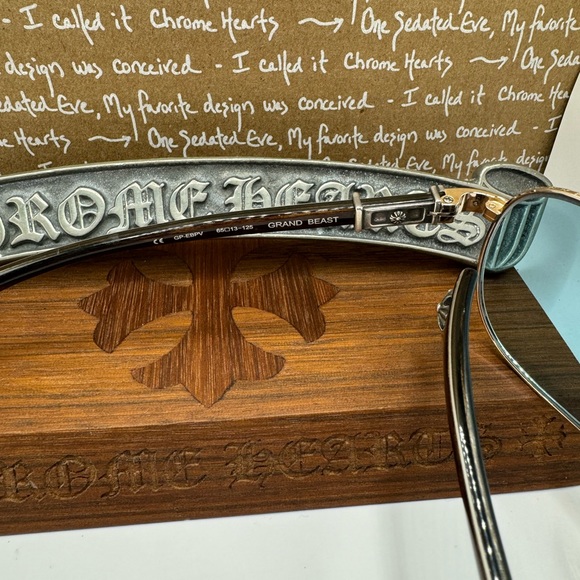 - I called it Chrome Hearts → One Sedated Eve, My favorite
design was conceived - I called it Chrome Hearts → One Seda
edated Eve, My favorite design was conceived - I called it Chrome Hea
e Hearts → One Sedated Eve, My favorite design was conceived - I
I called it Chrome Hearts → One Sedated
CHROME HEARTS
CE GP-EBPV 65□13-125 GRAND BEAST
CHROME HEARTS